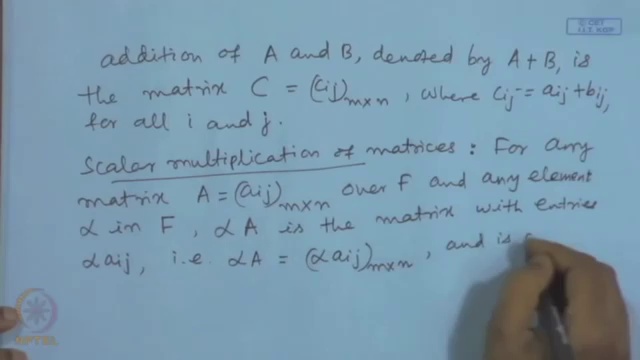 © CET
I.I.T. KGP
addition of A and B, denoted by A+B, is
the matrix C = (cij)m×n, where cij = aij + bij,
for all i and j.
Scalar multiplication of matrices: For any
matrix A = (aij)m×n over F and any element
α in F, αA is the matrix with entries
αaij, i.e. αA = (αaij)m×n, and is
NPTEL